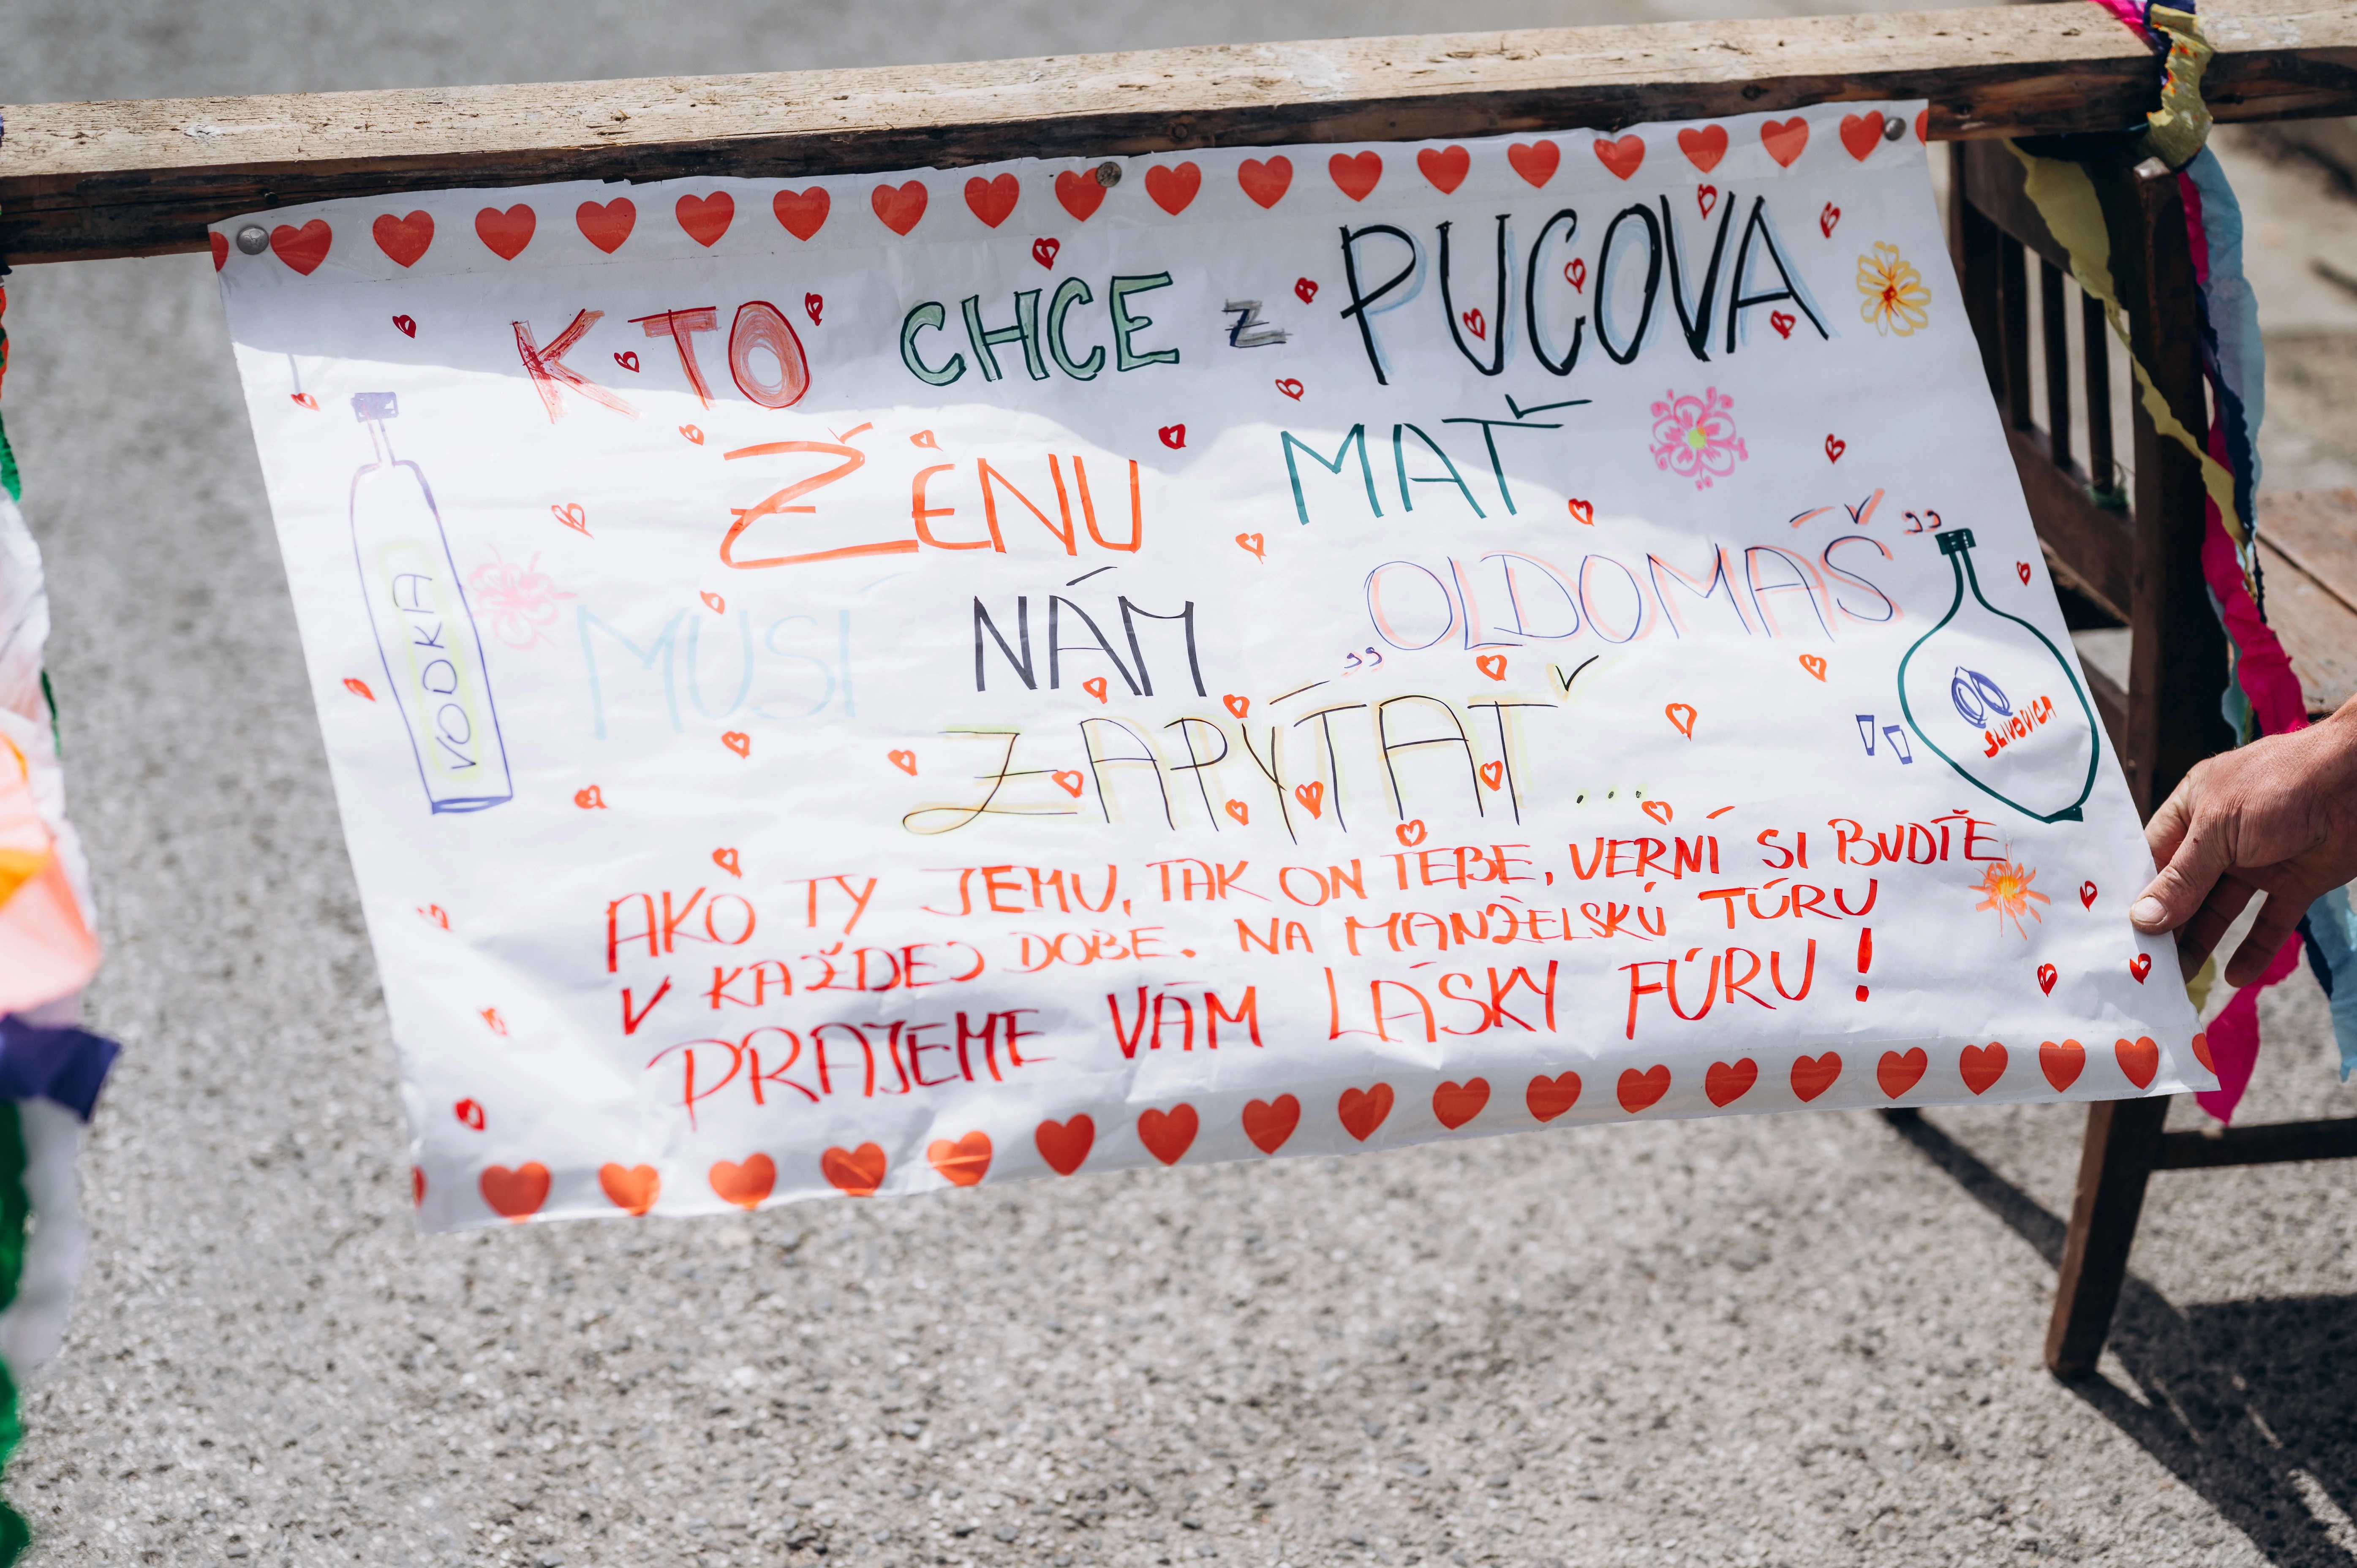 KTO CHCE z PUCOVA
ŽENU MAŤ
MUSÍ NÁM „OLDOMÁŠ"
ZAPÝTAŤ...
AKO TY JEMU, TAK ON TEBE, VERNÍ SI BUĎTE
V KAŽDEJ DOBE. NA MANŽELSKÚ TÚRU
PRAJEME VÁM LÁSKY FÚRU!
VODKA
SLIVOVICA